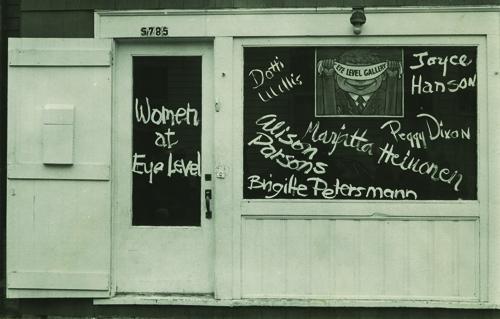 5785
Women
at
Eye Level
Dotti
Willis
EYE LEVEL GALLERY
Joyce
Hanson
Alison
Parsons
Marjitta Heinonen
Peggy Dixon
Brigitte Petersmann